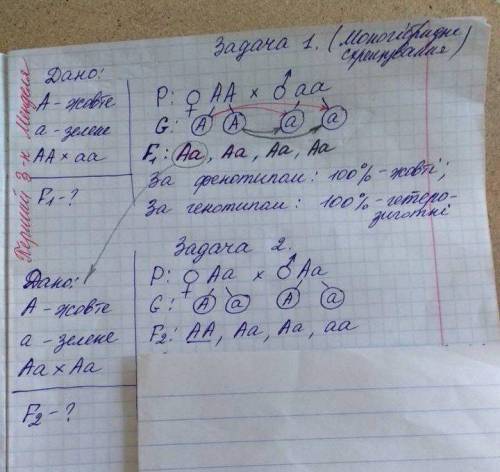 Задача 1. (Моногібридне схрещування)
Перший З-н Менделя
Дано:
А - жовте
а - зелене
АА × аа
F1 - ?
P: ♀ АА × ♂ аа
G: А А а а
F1: Аа, Аа, Аа, Аа
За фенотипом: 100% - жовті;
За генотипом: 100% - гетеро-
зиготні
Задача 2.
Дано:
А - жовте
а - зелене
Аа × Аа
F2 - ?
P: ♀ Аа × ♂ Аа
G: А а А а
F2: АА, Аа, Аа, аа